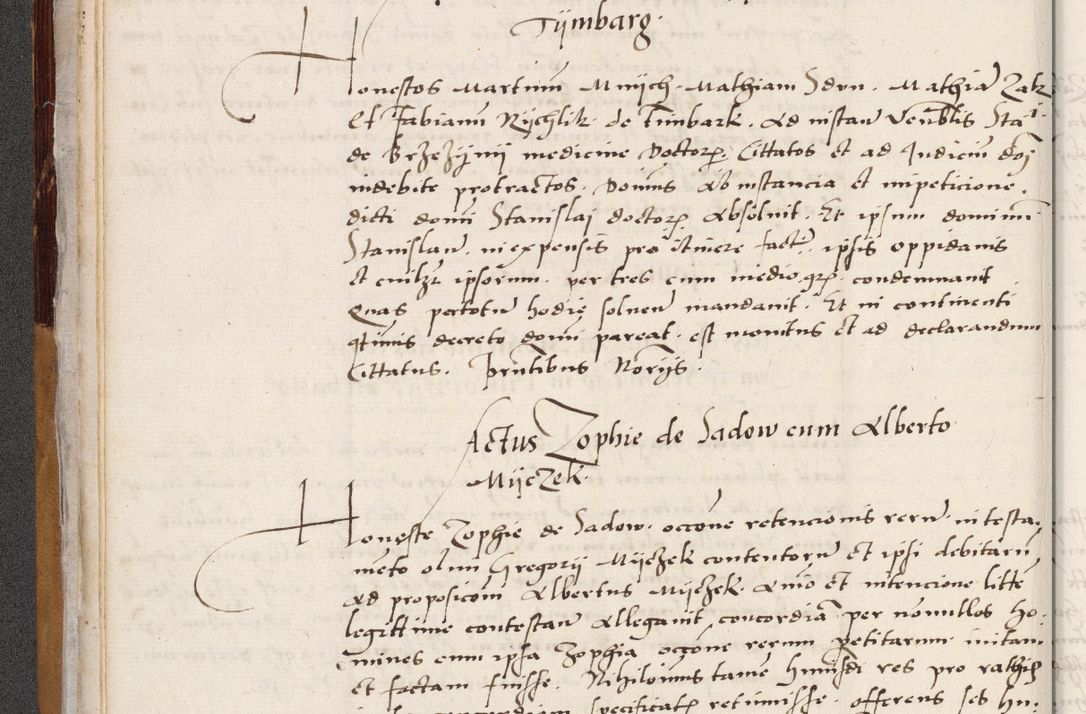 Tijmbarg
Honestos Martinu Mnijch Mathiam Sdvn Mathia Zak
Et Fabianu Rijchlik de Timbark Ad instan Venblis Sta
de Brzezijnij medicine doctor Cittatos et ad Judiciu doj
indebite protractos Donus Ab instancia et impeticione
dicti domi Stanislaj doctor Absoluit Et ipsum dominu
Stanislau in expensis pro itinere factu ipsis oppidanis
et ipsorum per tres cum medio condemnauit
Quas pertotu hodie soluen mandauit Et ni continenti
decreto domi pareat est monitus et ad declarandum
Cittatus Prntibus Norijs
Actus Zophie de Sadow cum Alberto
Mijczek
Honeste Zophie de Sadow occone retencionis reru in testa
meto olim Gregorij Mijczek contentoru et ipsi debitaru
Ad proposicom Albertus Mijczek Animo et intencione litte
legittime contestan Allegauit concordia per nonnullos ho
mines cum ipsa Zophia occone rerum petitarum initam
et factam fuisse Nihilominus tame res pro
specificat retinuisse offerens seb hu